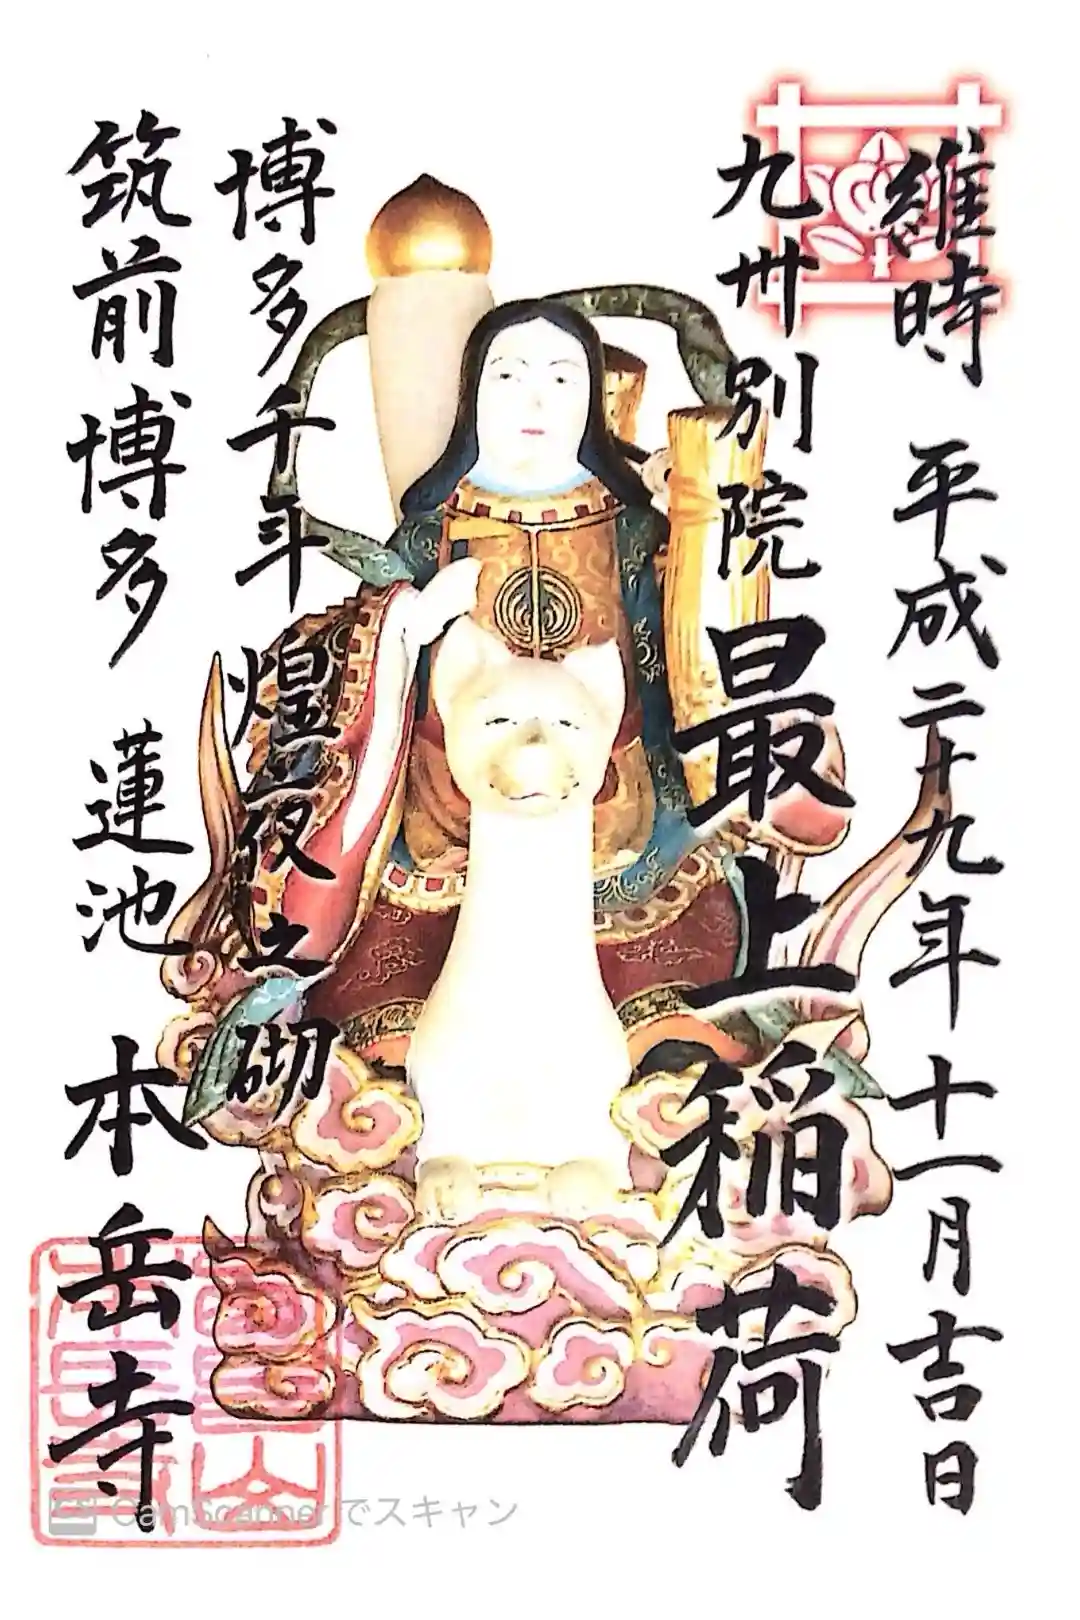 維時 平成二十九年十一月吉日
九州別院 最上稲荷
博多千年煌夜之砌
筑前博多 蓮池 本岳寺
CS CamScanner でスキャン